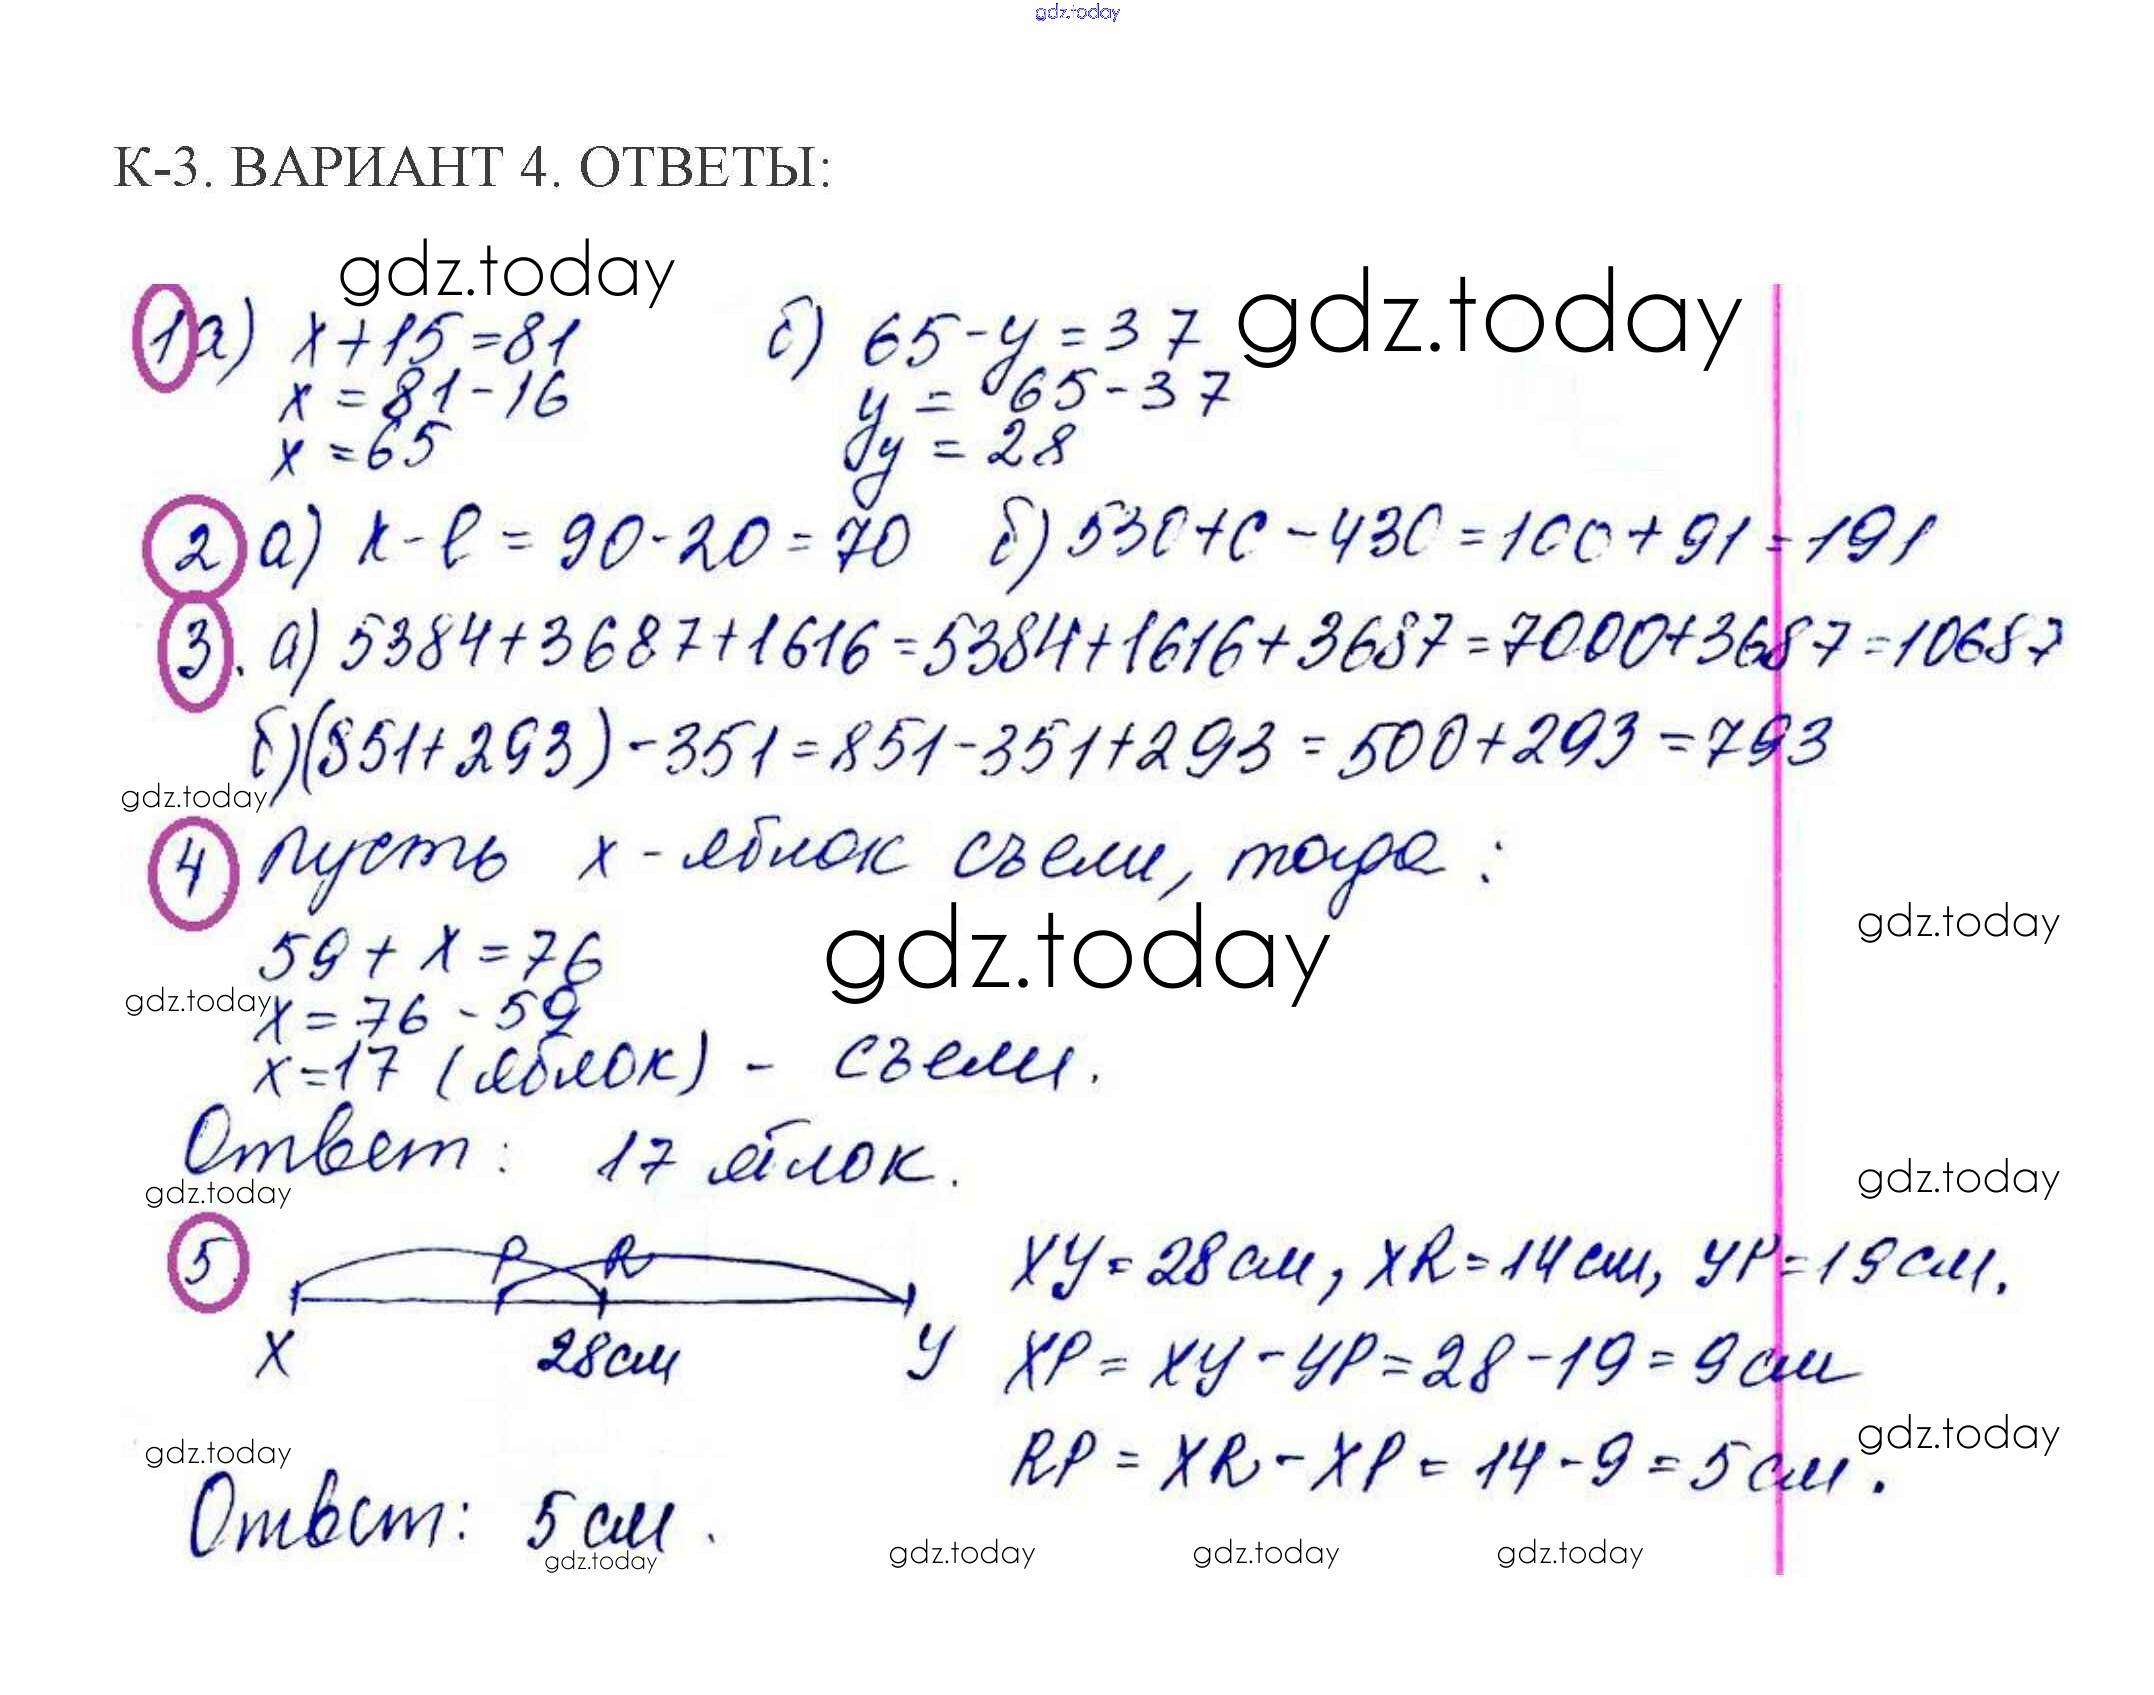 gdz.today
К-3. ВАРИАНТ 4. ОТВЕТЫ:
gdz.today
gdz.today
1 а) x+15=81 б) 65-y=37
x=81-16 y=65-37
x=65 y=28
2 а) k-l=90-20=70 б) 530+c-430=100+91=191
3. а) 5384+3687+1616=5384+1616+3687=7000+3687=10687
б) (851+293)-351=851-351+293=500+293=793
gdz.today
4 Пусть x-яблок съели, тогда:
gdz.today
59+x=76
gdz.today
gdz.today
x=76-59
x=17 (яблок) - съели.
Ответ: 17 яблок.
gdz.today
gdz.today
5 P R XY=28см, XR=14см, YP=19см.
X 28см Y XP=XY-YP=28-19=9см
gdz.today
gdz.today
RP=XR-XP=14-9=5см.
Ответ: 5см.
gdz.today
gdz.today
gdz.today
gdz.today